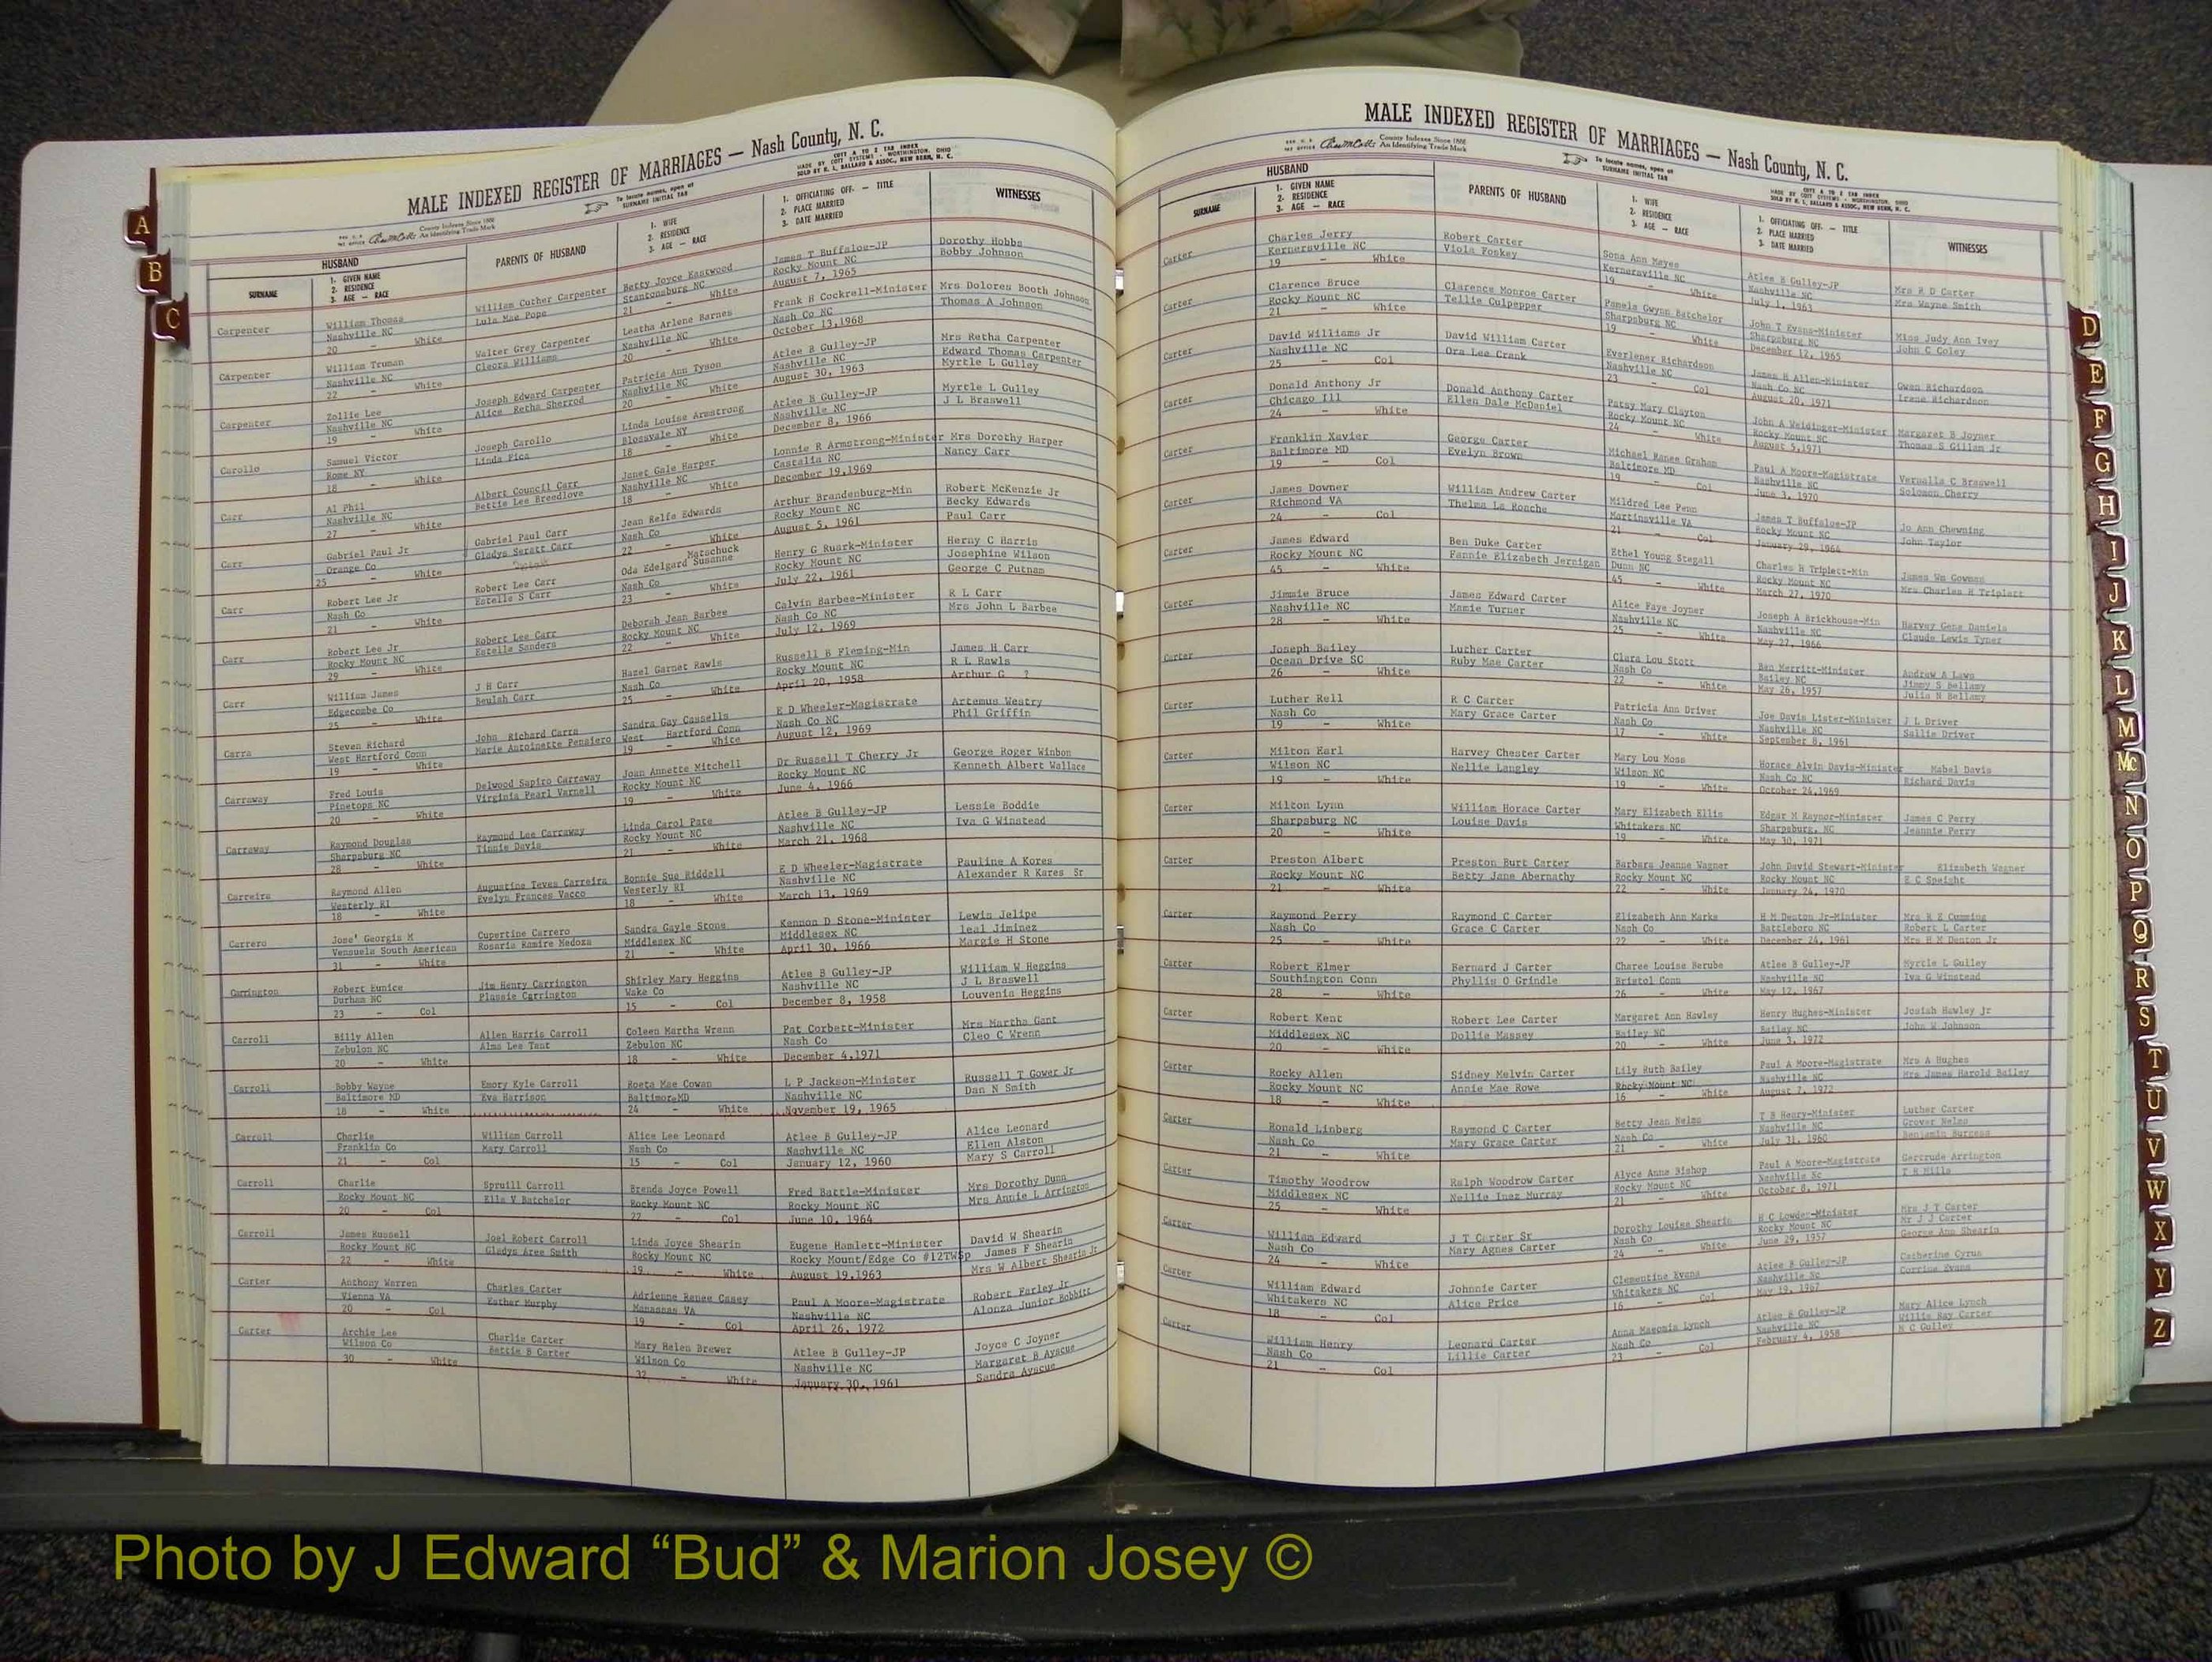 MALE INDEXED REGISTER OF MARRIAGES — Nash County, N. C.
County Indexes Since 1888
An Identifying Trade Mark
To locate names, open at
SURNAME INITIAL TAB
COTT A TO Z TAB INDEX
MADE BY COTT SYSTEMS - WORTHINGTON, OHIO
SOLD BY H. L. BALLARD & ASSOC., NEW BERN, N. C.
HUSBAND
SURNAME
1. GIVEN NAME
2. RESIDENCE
3. AGE — RACE
PARENTS OF HUSBAND
1. WIFE
2. RESIDENCE
3. AGE — RACE
1. OFFICIATING OFF. - TITLE
2. PLACE MARRIED
3. DATE MARRIED
WITNESSES
Carpenter William Thomas William Cuther Carpenter Betty Joyce Eastwood James T Buffaloe-JP Dorothy Hobbs
Nashville NC Lula Mae Pope Stantonsburg NC Rocky Mount NC Bobby Johnson
20 - White 21 - White August 7, 1965
Carpenter William Truman Walter Grey Carpenter Leatha Arlene Barnes Frank H Cockrell-Minister Mrs Dolores Booth Johnson
Nashville NC Cleora Williams Nashville NC Nash Co NC Thomas A Johnson
22 - White 20 - White October 13,1968
Carpenter Zollie Lee Joseph Edward Carpenter Patricia Ann Tyson Atlee B Gulley-JP Mrs Retha Carpenter
Nashville NC Alice Retha Sherrod Nashville NC Nashville NC Edward Thomas Carpenter
19 - White 20 - White August 30, 1963 Myrtle L Gulley
Carollo Samuel Victor Joseph Carollo Linda Louise Armstrong Atlee B Gulley-JP Myrtle L Gulley
Rome NY Linda Pica Blossvale NY Nashville NC J L Braswell
18 - White 18 - White December 8, 1966
Carr Al Phil Albert Council Carr Janet Gale Harper Lonnie R Armstrong-Minister Mrs Dorothy Harper
Nashville NC Bettie Lee Breedlove Nashville NC Castalia NC Nancy Carr
27 - White 18 - White December 19,1969
Carr Gabriel Paul Jr Gabriel Paul Carr Jean Relfe Edwards Arthur Brandenburg-Min Robert McKenzie Jr
Orange Co Gladys Carr Nash Co Rocky Mount NC Becky Edwards
25 - White 22 - White August 5, 1961 Paul Carr
Carr Robert Lee Jr Robert Lee Carr Oda Edelgard Susanne Matschuck Henry G Ruark-Minister Herny C Harris
Nash Co Estelle S Carr Nash Co Rocky Mount NC Josephine Wilson
21 - White 23 - White July 22, 1961 George C Putnam
Carr Robert Lee Jr Robert Lee Carr Deborah Jean Barbee Calvin Barbee-Minister R L Carr
Rocky Mount NC Estelle Sanders Rocky Mount NC Nash Co NC Mrs John L Barbee
29 - White 22 - White July 12, 1969
Carr William James J H Carr Hazel Garnet Rawls Russell B Fleming-Min James H Carr
Edgecombe Co Beulah Carr Nash Co Rocky Mount NC R L Rawls
25 - White 25 - White April 20, 1958 Arthur G ?
Carra Steven Richard John Richard Carra Sandra Gay Cassells E D Wheeler-Magistrate Artemus Westry
West Hartford Conn Marie Antoinette Pensiero West Hartford Conn Nash Co NC Phil Griffin
19 - White 19 - White August 12, 1969
Carraway Fred Louis Delwood Sapiro Carraway Joan Annette Mitchell Dr Russell T Cherry Jr George Roger Winbon
Pinetops NC Virginia Pearl Varnell Rocky Mount NC Rocky Mount NC Kenneth Albert Wallace
20 - White 19 - White June 4, 1966
Carraway Raymond Douglas Raymond Lee Carraway Linda Carol Pate Atlee B Gulley-JP Lessie Boddie
Sharpsburg NC Tinnie Davis Rocky Mount NC Nashville NC Iva G Winstead
28 - White 21 - White March 21, 1968
Carreira Raymond Allen Augustine Teves Carreira Bonnie Sue Riddell E D Wheeler-Magistrate Pauline A Kores
Westerly RI Evelyn Frances Vacco Westerly RI Nashville NC Alexander R Kares Sr
18 - White 18 - White March 13, 1969
Carrero Jose' Georgis M Cupertine Carrero Sandra Gayle Stone Kennon D Stone-Minister Lewis Jelipe
Vensuela South American Rosaria Ramire Medoza Middlesex NC Middlesex NC leal Jiminez
31 - White 21 - White April 30, 1966 Margie H Stone
Carrington Robert Eunice Jim Henry Carrington Shirley Mary Heggins Atlee B Gulley-JP William W Heggins
Durham NC Plassie Carrington Wake Co Nashville NC J L Braswell
23 - Col 15 - Col December 8, 1958 Louvenia Heggins
Carroll Billy Allen Allen Harris Carroll Coleen Martha Wrenn Pat Corbett-Minister Mrs Martha Gant
Zebulon NC Alma Lee Tant Zebulon NC Nash Co Cleo C Wrenn
20 - White 18 - White December 4,1971
Carroll Bobby Wayne Emory Kyle Carroll Roeta Mae Cowan L P Jackson-Minister Russell T Gower Jr
Baltimore MD Eva Harrison Baltimore MD Nashville NC Dan N Smith
18 - White 24 - White November 19, 1965
Carroll Charlie William Carroll Alice Lee Leonard Atlee B Gulley-JP Alice Leonard
Franklin Co Mary Carroll Nash Co Nashville NC Ellen Alston
21 - Col 15 - Col January 12, 1960 Mary S Carroll
Carroll Charlie Spruill Carroll Brenda Joyce Powell Fred Battle-Minister Mrs Dorothy Dunn
Rocky Mount NC Ella V Batchelor Rocky Mount NC Rocky Mount NC Mrs Annie L Arrington
20 - Col 22 - Col June 10, 1964
Carroll James Russell Joel Robert Carroll Linda Joyce Shearin Eugene Hamlett-Minister David W Shearin
Rocky Mount NC Gladys Aree Smith Rocky Mount NC Rocky Mount/Edge Co #12TWSp James F Shearin
22 - White 19 - White August 19,1963 Mrs W Albert Shearin Jr
Carter Anthony Warren Charles Carter Adrienne Renee Casey Paul A Moore-Magistrate Robert Farley Jr
Vienna VA Esther Murphy Manassas VA Nashville NC Alonza Junior Bobbitt
20 - Col 19 - Col April 26, 1972
Carter Archie Lee Charlie Carter Mary Helen Brewer Atlee B Gulley-JP Joyce C Joyner
Wilson Co Bettie B Carter Wilson Co Nashville NC Margaret B Ayscue
30 - White 32 - White January 30, 1961 Sandra Ayscue
MALE INDEXED REGISTER OF MARRIAGES — Nash County, N. C.
County Indexes Since 1888
An Identifying Trade Mark
To locate names, open at
SURNAME INITIAL TAB
COTT A TO Z TAB INDEX
MADE BY COTT SYSTEMS - WORTHINGTON, OHIO
SOLD BY H. L. BALLARD & ASSOC., NEW BERN, N. C.
HUSBAND
SURNAME
1. GIVEN NAME
2. RESIDENCE
3. AGE — RACE
PARENTS OF HUSBAND
1. WIFE
2. RESIDENCE
3. AGE — RACE
1. OFFICIATING OFF. - TITLE
2. PLACE MARRIED
3. DATE MARRIED
WITNESSES
Carter Charles Jerry Robert Carter Sona Ann Mayes Atlee B Gulley-JP Mrs R D Carter
Kernersville NC Viola Foskey Kernersville NC Nashville NC Mrs Wayne Smith
19 - White 19 - White July 1, 1963
Carter Clarence Bruce Clarence Monroe Carter Pamela Gwynn Batchelor John T Evans-Minister Miss Judy Ann Ivey
Rocky Mount NC Tellie Culpepper Sharpsburg NC Sharpsburg NC John C Coley
21 - White 19 - White December 12, 1965
Carter David Williams Jr David William Carter Everlener Richardson James H Allen-Minister Gwen Richardson
Nashville NC Ora Lee Crank Nashville NC Nash Co NC Irene Richardson
25 - Col 23 - Col August 20, 1971
Carter Donald Anthony Jr Donald Anthony Carter Patsy Mary Clayton John A Weidinger-Minister Margaret B Joyner
Chicago Ill Ellen Dale McDaniel Rocky Mount NC Rocky Mount NC Thomas S Gillam Jr
24 - White 24 - White August 5,1971
Carter Franklin Xavier George Carter Michael Ranee Graham Paul A Moore-Magistrate Vernalla C Braswell
Baltimore MD Evelyn Brown Baltimore MD Nashville NC Solomon Cherry
19 - Col 19 - Col June 3, 1970
Carter James Downer William Andrew Carter Mildred Lee Penn James T Buffaloe-JP Jo Ann Chewning
Richmond VA Thelma La Ronche Martinsville VA Rocky Mount NC John Taylor
24 - Col 21 - Col January 29, 1964
Carter James Edward Ben Duke Carter Ethel Young Stegall Charles H Triplett-Min James Wm Cowman
Rocky Mount NC Fannie Elizabeth Jernigan Dunn NC Rocky Mount NC Mrs Charles H Triplett
45 - White 45 - White March 27, 1970
Carter Jimmie Bruce James Edward Carter Alice Faye Joyner Joseph A Brickhouse-Min Harvey Gene Daniels
Nashville NC Mamie Turner Nashville NC Nashville NC Claude Lewis Tyner
28 - White 25 - White May 27, 1966
Carter Joseph Bailey Luther Carter Clara Lou Stott Ben Merritt-Minister Andrew A Laws
Ocean Drive SC Ruby Mae Carter Nash Co Bailey NC Jimmy S Bellamy
26 - White 22 - White May 26, 1957 Julia N Bellamy
Carter Luther Rell R C Carter Patricia Ann Driver Joe Davis Lister-Minister J L Driver
Nash Co Mary Grace Carter Nash Co Nashville NC Sallie Driver
19 - White 17 - White September 8, 1961
Carter Milton Earl Harvey Chester Carter Mary Lou Moss Horace Alvin Davis-Minister Mabel Davis
Wilson NC Nellie Langley Wilson NC Nash Co NC Richard Davis
19 - White 19 - White October 24,1969
Carter Milton Lynn William Horace Carter Mary Elizabeth Ellis Edgar M Raynor-Minister James C Perry
Sharpsburg NC Louise Davis Whitakers NC Sharpsburg, NC Jeannie Perry
20 - White 19 - White May 30, 1971
Carter Preston Albert Preston Burt Carter Barbara Jeanne Wagner John David Stewart-Minister Elizabeth Wagner
Rocky Mount NC Betty Jane Abernathy Rocky Mount NC Rocky Mount NC E C Speight
21 - White 22 - White January 24, 1970
Carter Raymond Perry Raymond C Carter Elizabeth Ann Marks H M Denton Jr-Minister Mrs R E Cumming
Nash Co Grace C Carter Nash Co Battleboro NC Robert L Carter
25 - White 22 - White December 24, 1961 Mrs H M Denton Jr
Carter Robert Elmer Bernard J Carter Charee Louise Berube Atlee B Gulley-JP Myrtle L Gulley
Southington Conn Phyllis O Grindle Bristol Conn Nashville NC Iva G Winstead
28 - White 26 - White May 12, 1967
Carter Robert Kent Robert Lee Carter Margaret Ann Hawley Henry Hughes-Minister Josiah Hawley Jr
Middlesex NC Dollie Massey Bailey NC Bailey NC John W Johnson
20 - White 20 - White June 3, 1972
Carter Rocky Allen Sidney Melvin Carter Lily Ruth Bailey Paul A Moore-Magistrate Mrs A Hughes
Rocky Mount NC Annie Mae Rowe Rocky Mount NC Nashville NC Mrs James Harold Bailey
18 - White 16 - White August 7, 1972
Carter Ronald Linberg Raymond C Carter Betty Jean Nelms T B Henry-Minister Luther Carter
Nash Co Mary Grace Carter Nash Co Nashville NC Grover Nelms
21 - White 21 - White July 31, 1960 Benjamin Burgess
Carter Timothy Woodrow Ralph Woodrow Carter Alyce Anne Bishop Paul A Moore-Magistrate Gertrude Arrington
Middlesex NC Nellie Inez Murray Rocky Mount NC Nashville NC T R Hills
25 - White 21 - White October 8, 1971
Carter William Edward J T Carter Sr Dorothy Louise Shearin H C Lowder-Minister Mrs J T Carter
Nash Co Mary Agnes Carter Nash Co Rocky Mount NC Mr J J Carter
24 - White 24 - White June 29, 1957 George Ann Shearin
Carter William Edward Johnnie Carter Clementine Evans Atlee B Gulley-JP Catherine Cyrus
Whitakers NC Alice Price Whitakers NC Nashville NC Corrine Evans
18 - Col 16 - Col May 19, 1967
Carter William Henry Leonard Carter Anna Lynch Atlee B Gulley-JP Mary Alice Lynch
Nash Co Lillie Carter Nash Co Nashville NC Willie Ray Carter
21 - Col 23 - Col February 4, 1958 N C Gulley
A
B
C
D
E
F
G
H
I
J
K
L
M
Mc
N
O
P
Q
R
S
T
U
V
W
X
Y
Z
Photo by J Edward “Bud” & Marion Josey ©